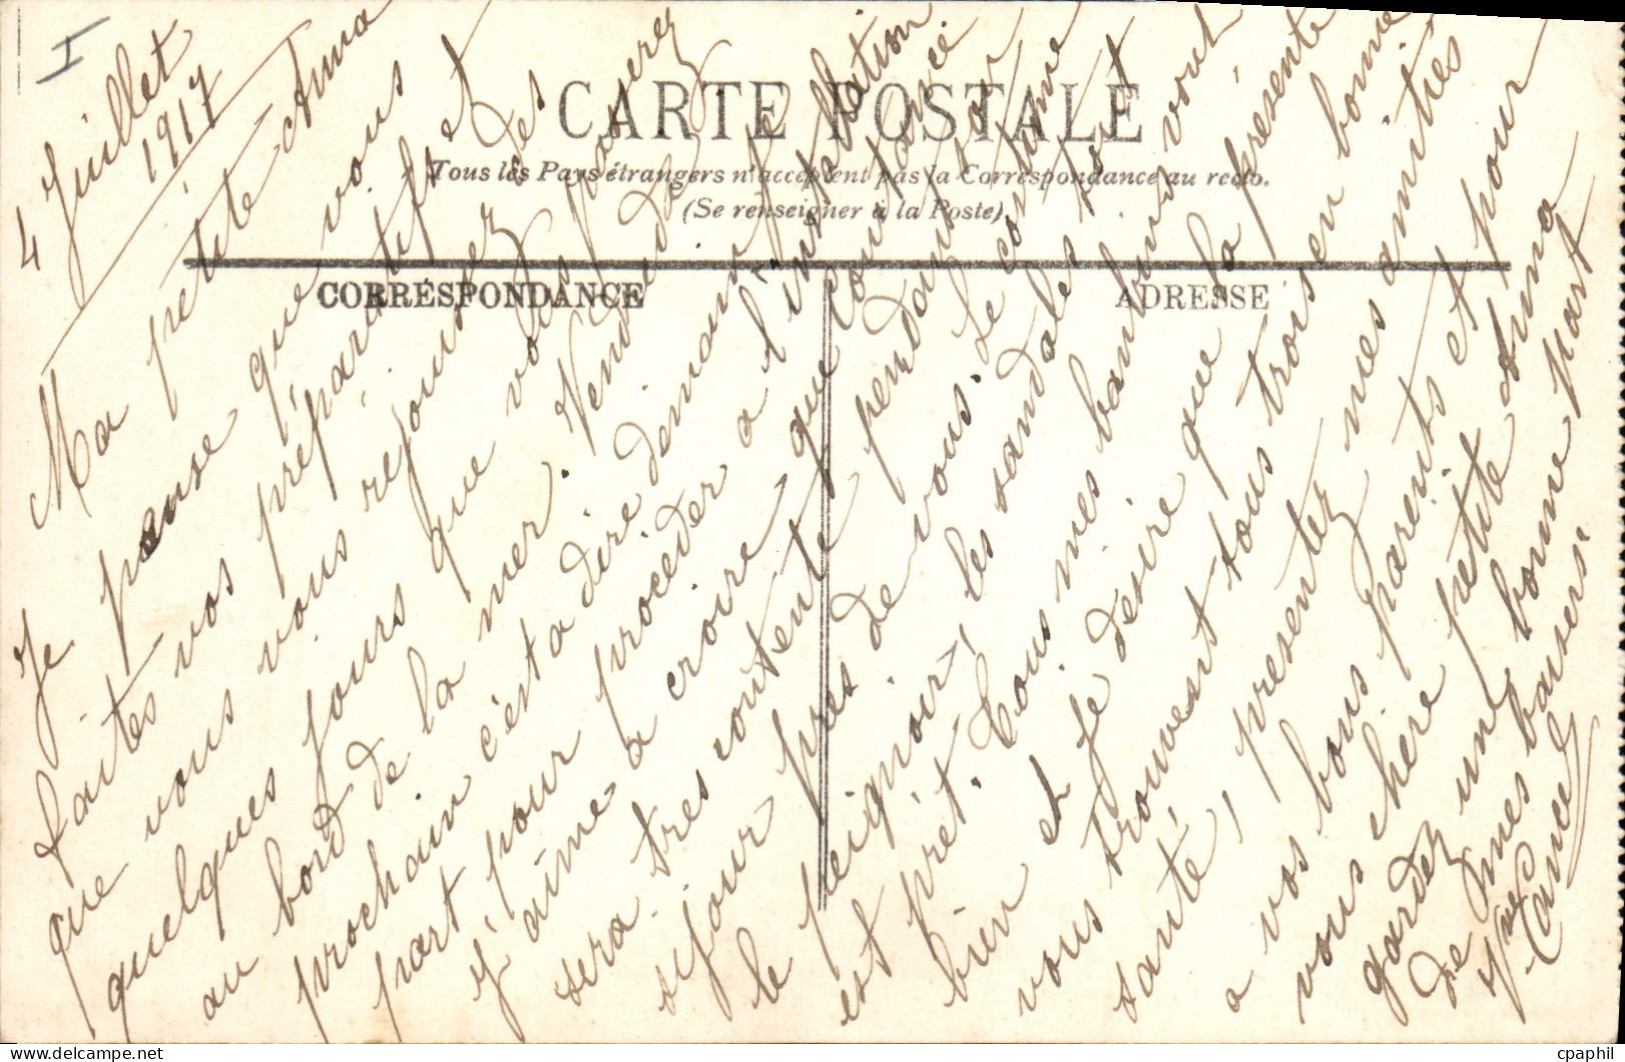 I
4 Juillet
1917
CARTE POSTALE
Tous les Pays étrangers n'acceptent pas la Correspondance au recto.
(Se renseigner à la Poste)
CORRESPONDANCE
ADRESSE
Ma petite Anna
Je pense que vous
faites vos préparatifs et
que vous vous rejouissez des
quelques jours que vous passerez
au bord de la mer. Vendredi
prochain c'est a dire demain je
part pour proceder a l'installation
j'aime a croire que Constance
sera tres contente pendant son
sejour pres de vous. Le costume
le peignoir, les sandales tout
est prêt. Tous mes bambins vont
bien et je desire que la présente
vous trouvent tous trois en bonne
santé, presentez mes amities
a vos bons parents et pour
vous chère petite Anna
gardez une bonne part
de mes baisers.